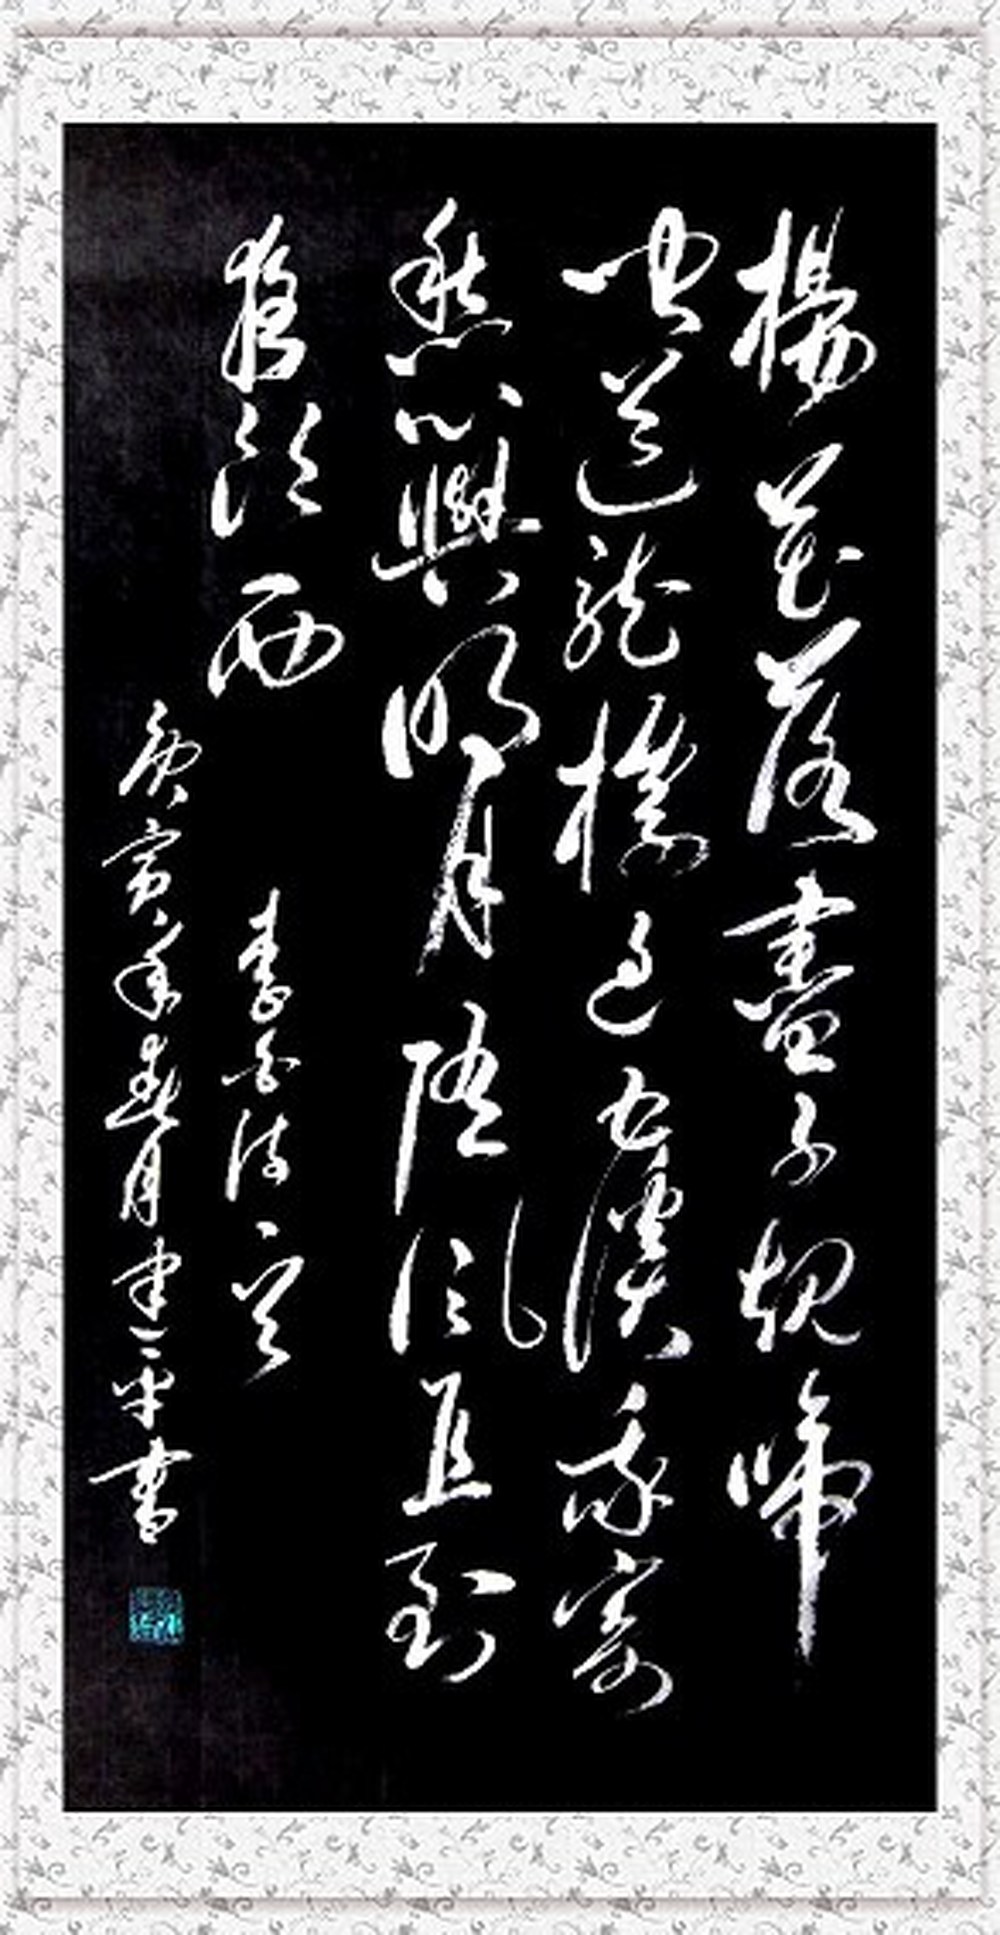 楊花落盡子規啼
聞道龍標過五溪我寄
愁心與明月隨風直到
夜郎西
李白詩一首
庚寅年春月 平書